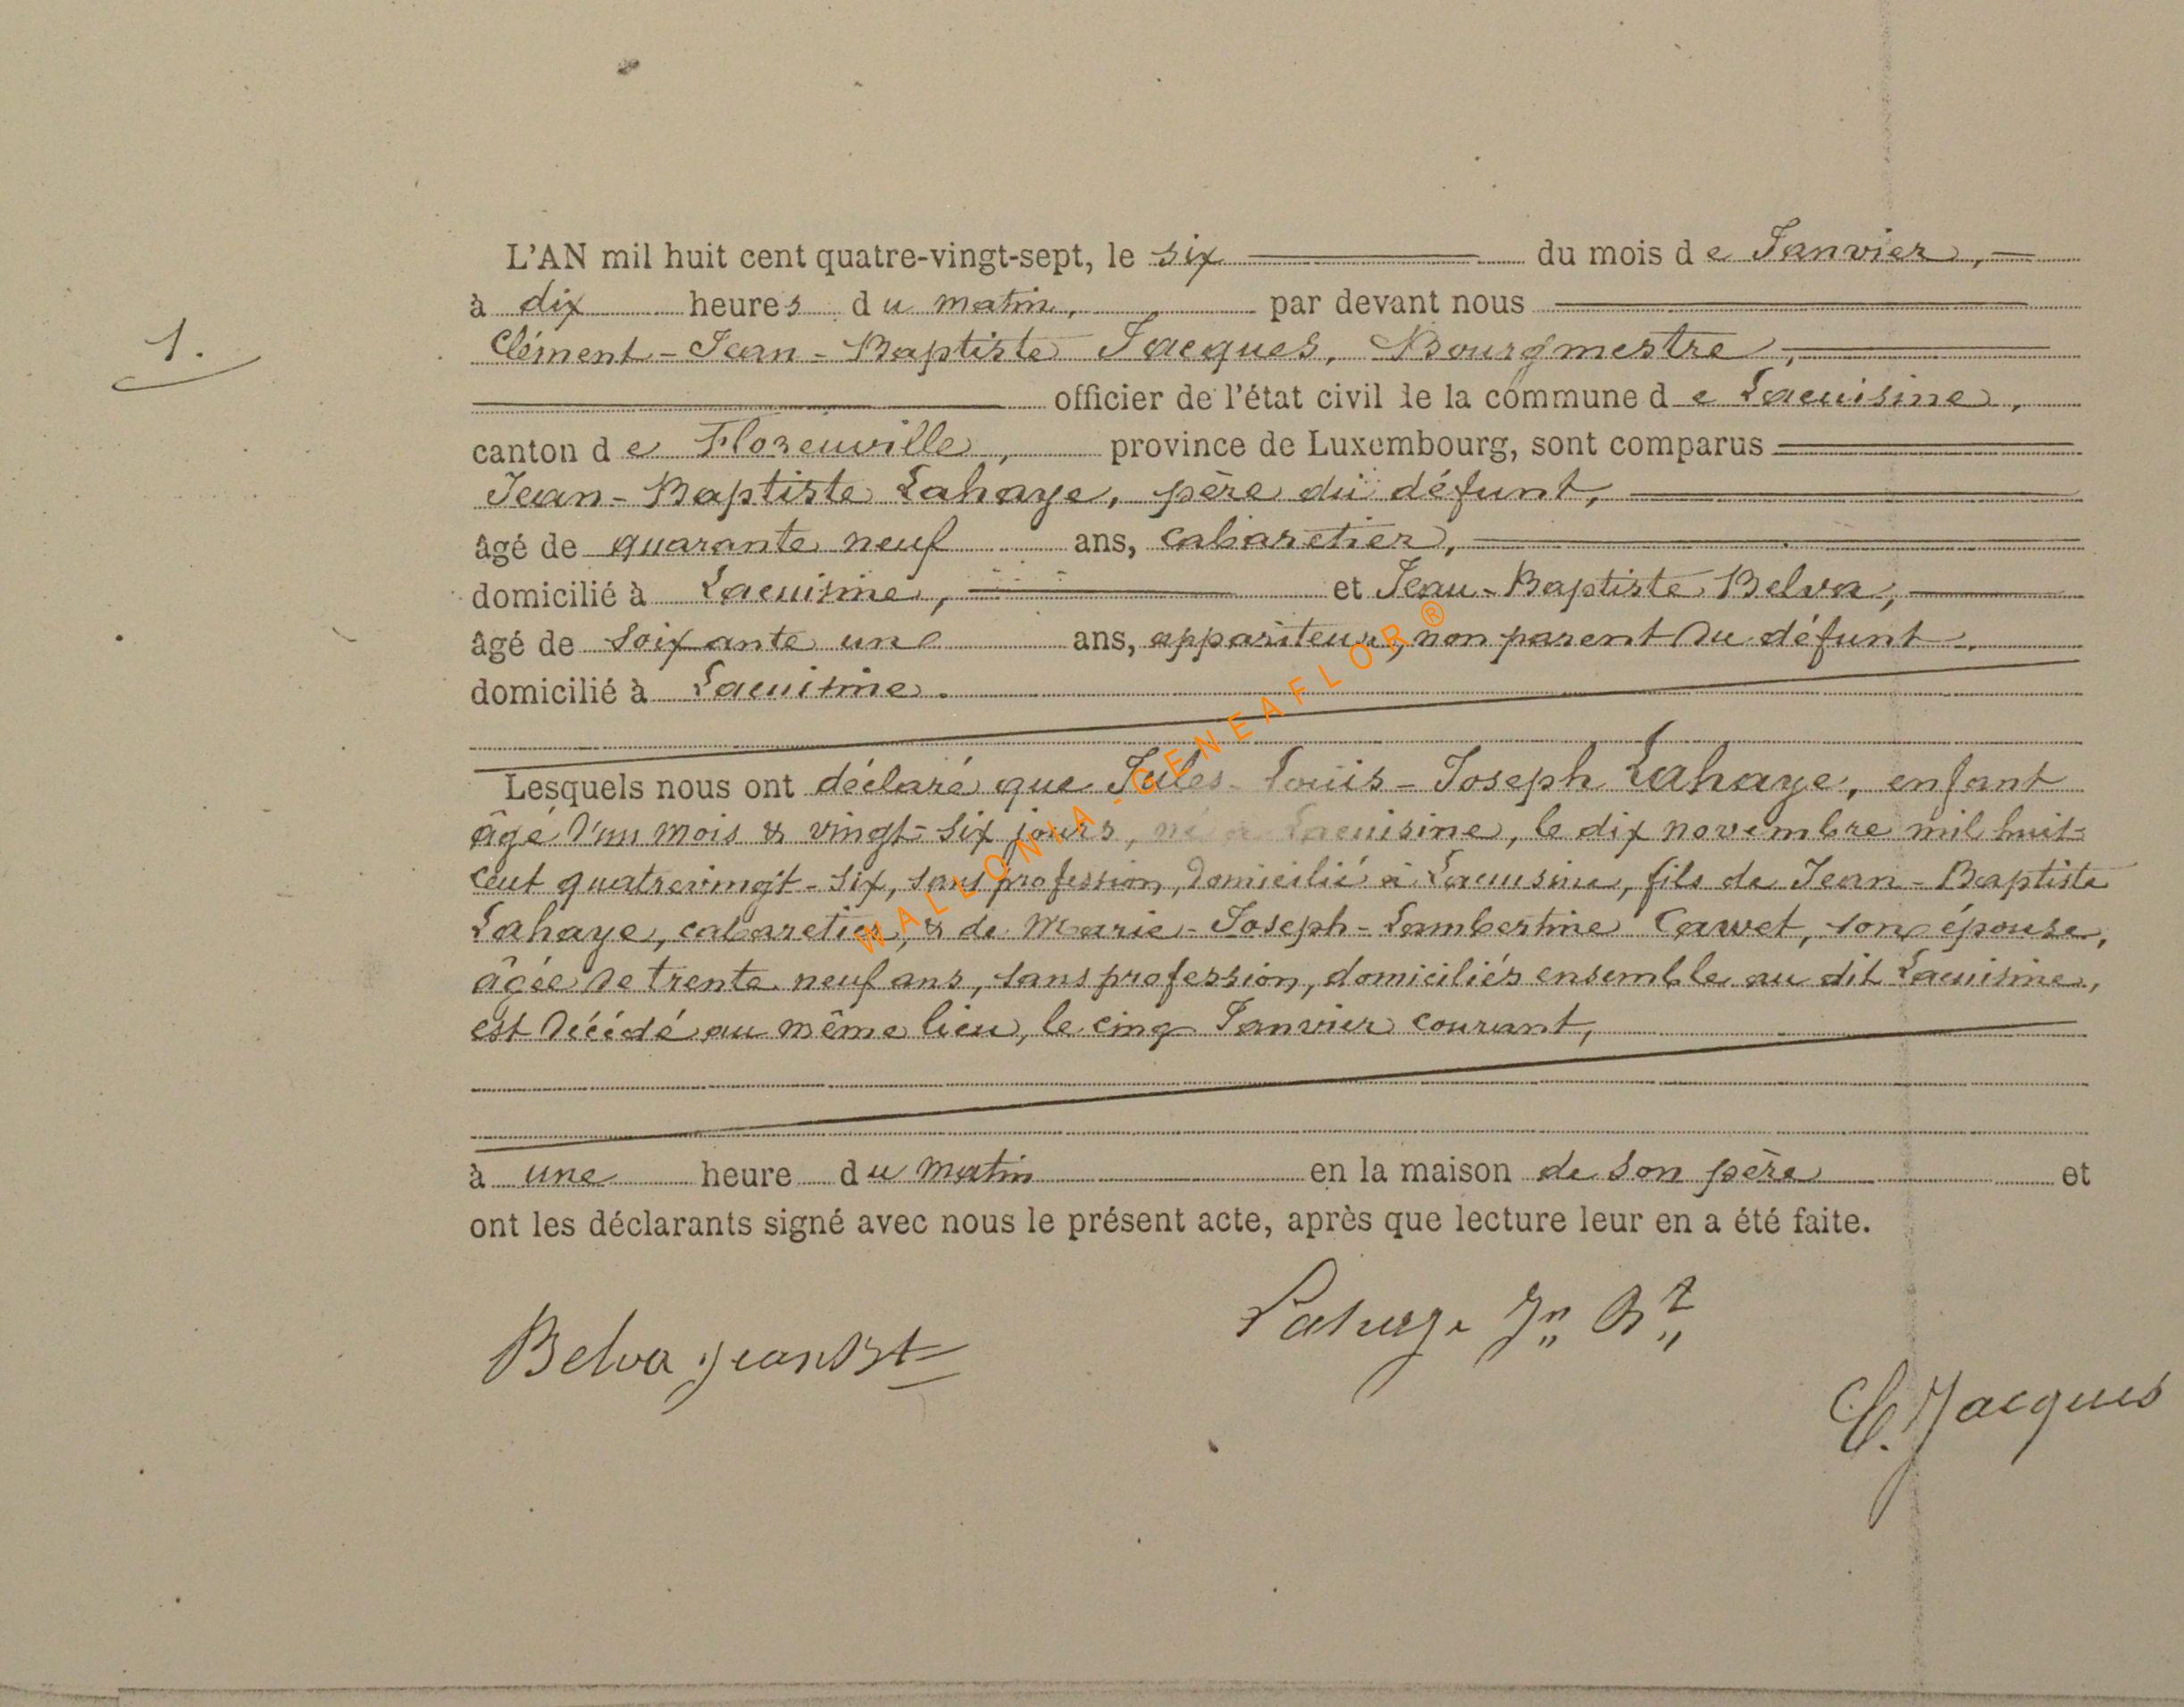 L'AN mil huit cent quatre-vingt-sept, le six du mois de Janvier,
à dix heures du matin, par devant nous
1.
Clément-Jean-Baptiste Jacques, Bourgmestre,
officier de l'état civil de la commune de Lacuisine,
canton de Florenville, province de Luxembourg, sont comparus
Jean-Baptiste Lahaye, père du défunt,
âgé de quarante neuf ans, cabaretier,
domicilié à Lacuisine, et Jean-Baptiste Belva,
âgé de soixante une ans, appariteur, non parent du défunt,
domicilié à Lacuisine.
Lesquels nous ont déclaré que Jules-Louis-Joseph Lahaye, enfant
âgé d'un mois & vingt-six jours, né à Lacuisine, le dix novembre mil huit-
cent quatrevingt-six, sans profession, domicilié à Lacuisine, fils de Jean-Baptiste
Lahaye, cabaretier, & de Marie-Joseph-Lambertine Cawet, son épouse,
âgée de trente neuf ans, sans profession, domiciliés ensemble au dit Lacuisine,
est décédé au même lieu, le cinq Janvier courant,
à une heure du matin en la maison de son père et
ont les déclarants signé avec nous le présent acte, après que lecture leur en a été faite.
Belva jean Bt
Lahaye Jn Bt
C. Jacques
WALLONIA-GENEAFLOR®